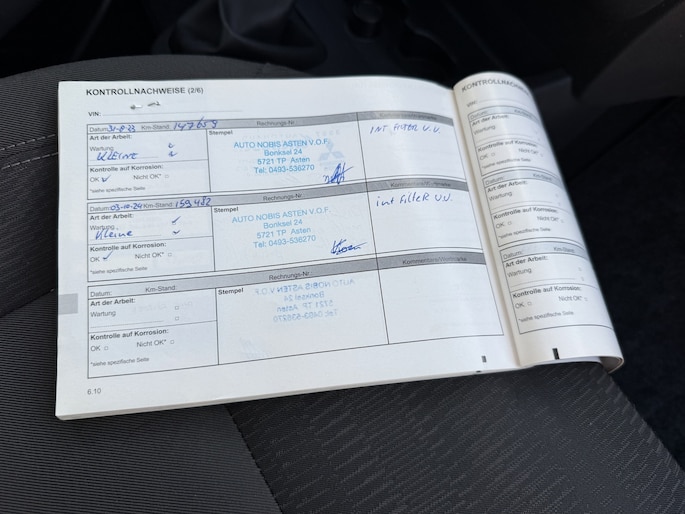 KONTROLLNACHWEISE (2/6)
VIN:
Datum: 31-8-23 Km-Stand: 147659 Rechnungs-Nr.:
Art der Arbeit:
Wartung
Kleine
Kontrolle auf Korrosion:
OK Nicht OK*
*siehe spezifische Seite
Stempel
AUTO NOBIS ASTEN V.O.F.
Bonksel 24
5721 TP Asten
Tel: 0493-536270
INT FILTER V.V.
Datum: 03-10-24 Km-Stand: 159482 Rechnungs-Nr.:
Art der Arbeit:
Wartung
Kleine
Kontrolle auf Korrosion:
OK Nicht OK*
*siehe spezifische Seite
Stempel
AUTO NOBIS ASTEN V.O.F.
Bonksel 24
5721 TP Asten
Tel: 0493-536270
int Filter V.V.
Datum: Km-Stand: Rechnungs-Nr.:
Art der Arbeit:
Wartung
Kontrolle auf Korrosion:
OK Nicht OK*
*siehe spezifische Seite
Stempel
6.10
KONTROLLNACHW
VIN:
Datum:
Art der Arbeit:
Wartung
Kontrolle auf Korrosion:
OK Nicht OK*
*siehe spezifische Seite
Datum: Km-Stand:
Art der Arbeit:
Wartung
Kontrolle auf Korrosion:
OK Nicht OK*
*siehe spezifische Seite
Datum: Km-Stand:
Art der Arbeit:
Wartung
Kontrolle auf Korrosion:
OK Nicht OK*
*siehe spezifische Seite